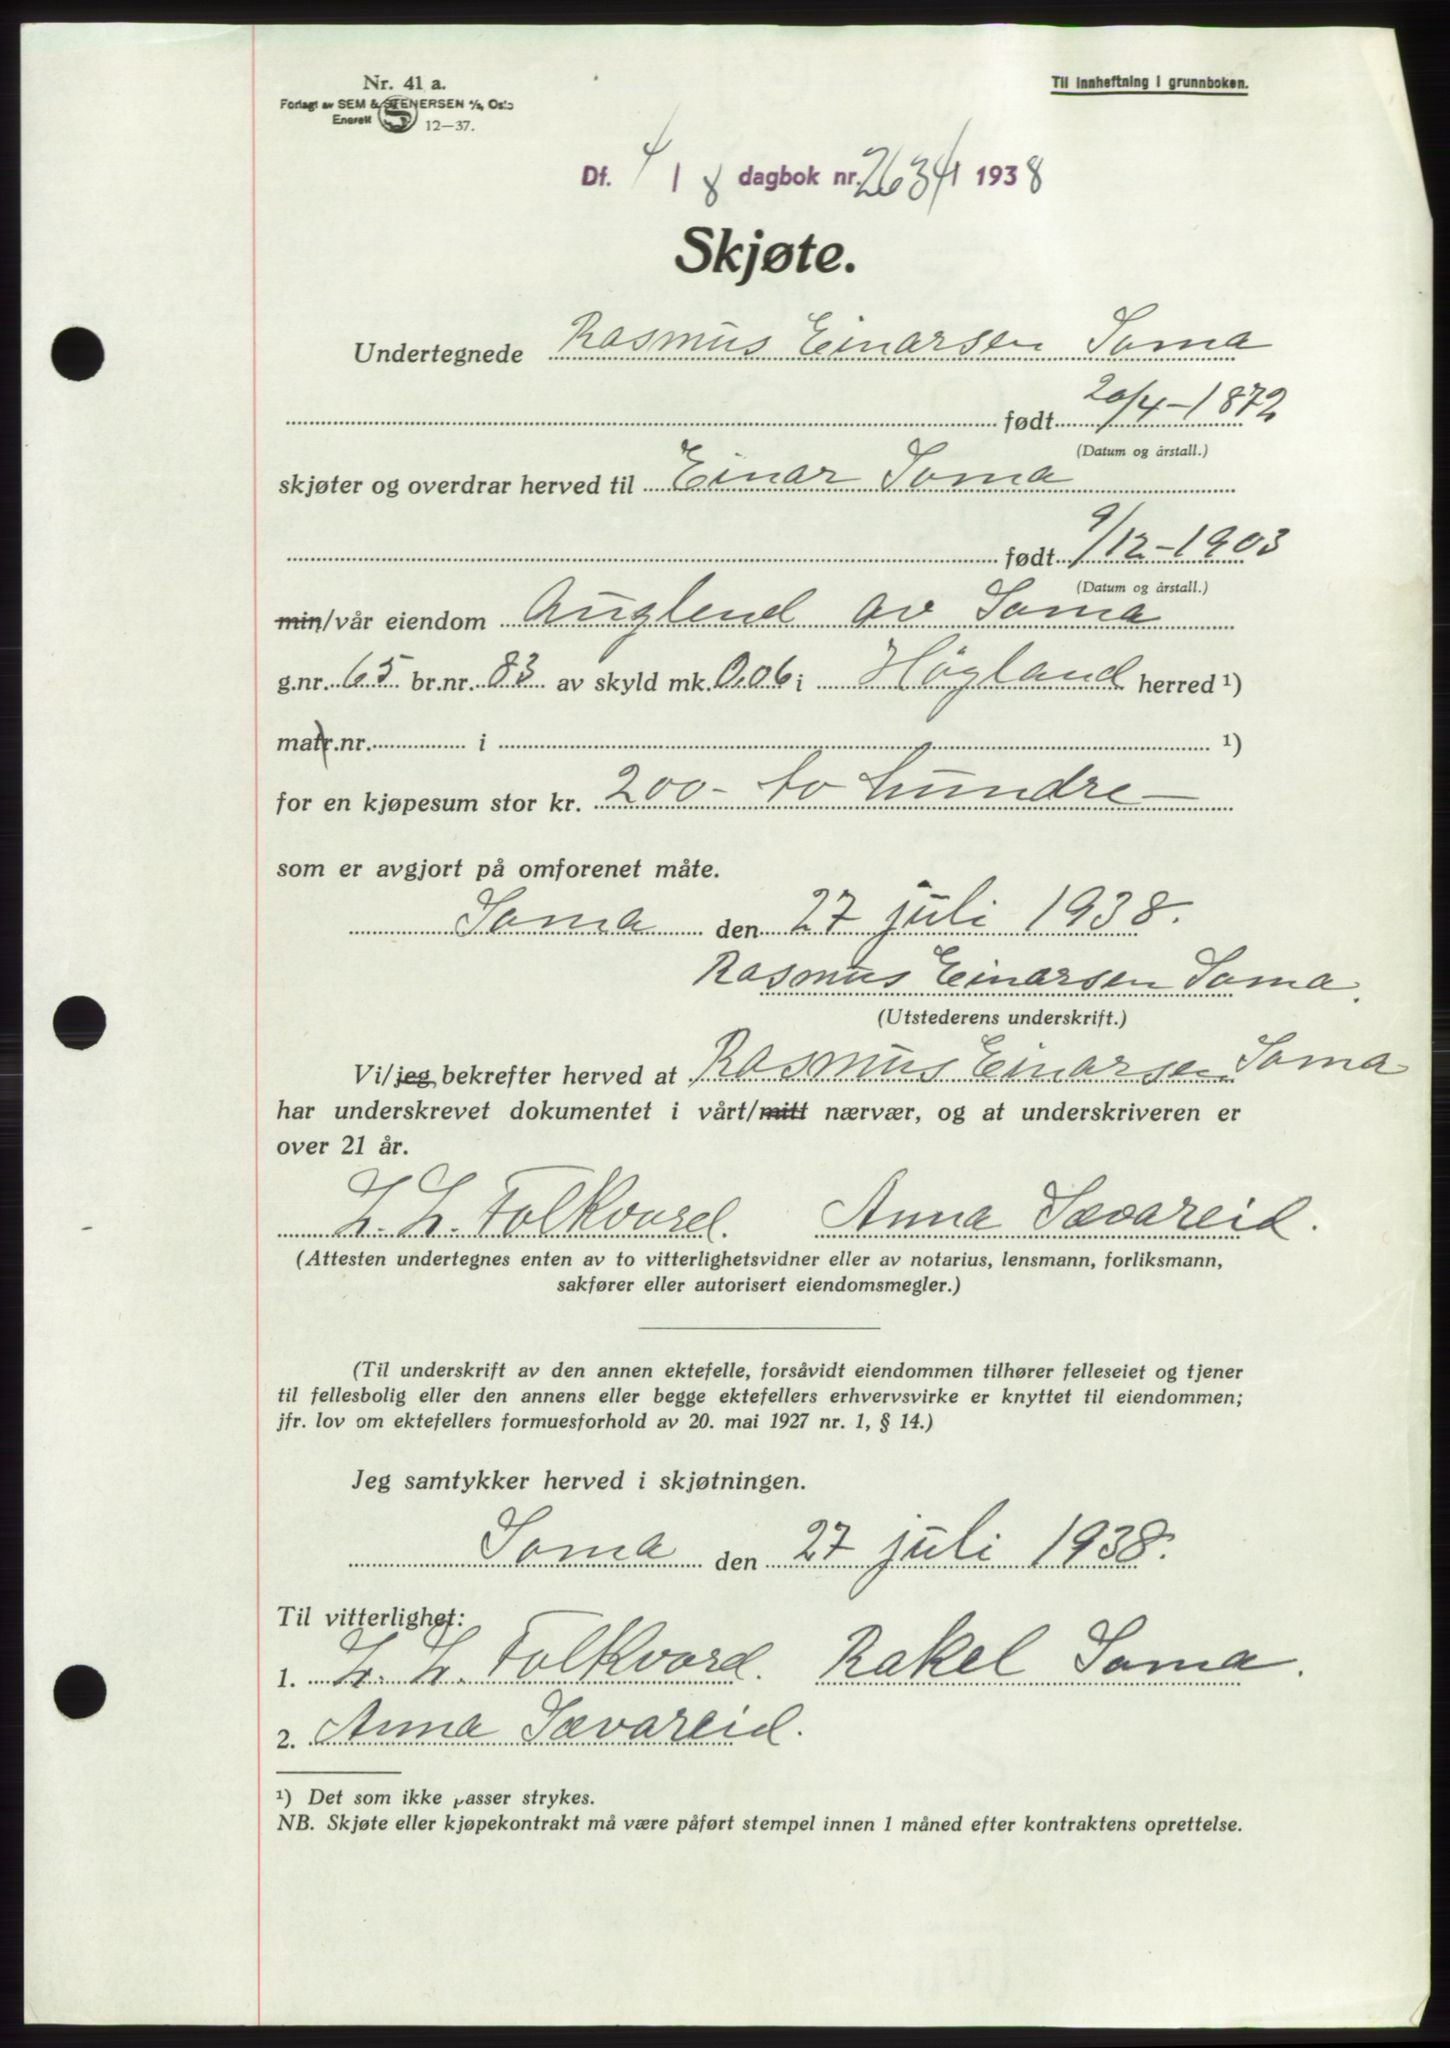 Nr. 41 a.
Forlagt av SEM & STENERSEN A/S, Oslo
Enerett
12—37.
Til innheftning i grunnboken.
Df. 4 / 8 dagbok nr. 2634 / 1938
Skjøte.
Undertegnede Rasmus Einarsen Soma
født 20/4-1872
(Datum og årstall.)
skjøter og overdrar herved til Einar Soma
født 9/12-1903
(Datum og årstall.)
min/vår eiendom Auglend av Soma
g.nr. 65 br.nr. 83 av skyld mk. 0,06 i Høgland herred ¹)
matr.nr. i ¹)
for en kjøpesum stor kr. 200- to hundre—
som er avgjort på omforenet måte.
Soma den 27 juli 1938.
Rasmus Einarsen Soma.
(Utstederens underskrift.)
Vi/jeg bekrefter herved at Rasmus Einarsen Soma
har underskrevet dokumentet i vårt/mitt nærvær, og at underskriveren er
over 21 år.
L. L. Folkvord. Anna Sævareid.
(Attesten undertegnes enten av to vitterlighetsvidner eller av notarius, lensmann, forliksmann,
sakfører eller autorisert eiendomsmegler.)
(Til underskrift av den annen ektefelle, forsåvidt eiendommen tilhører felleseiet og tjener
til fellesbolig eller den annens eller begge ektefellers erhvervsvirke er knyttet til eiendommen;
jfr. lov om ektefellers formuesforhold av 20. mai 1927 nr. 1, § 14.)
Jeg samtykker herved i skjøtningen.
Soma den 27 juli 1938.
Til vitterlighet:
1. L. L. Folkvord. Rakel Soma.
2. Anna Sævareid.
¹) Det som ikke passer strykes.
NB. Skjøte eller kjøpekontrakt må være påført stempel innen 1 måned efter kontraktens oprettelse.